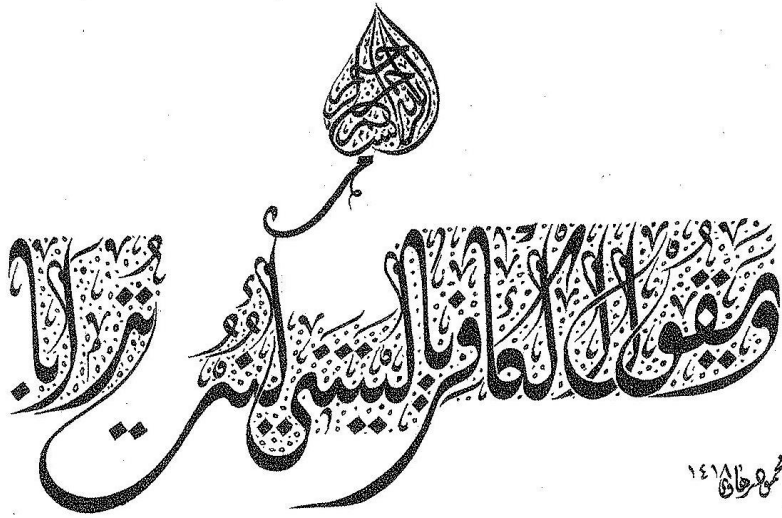 بسم الله الرحمن الرحيم
ويقول الكافر يا ليتني كنت ترابا
١٤١٨